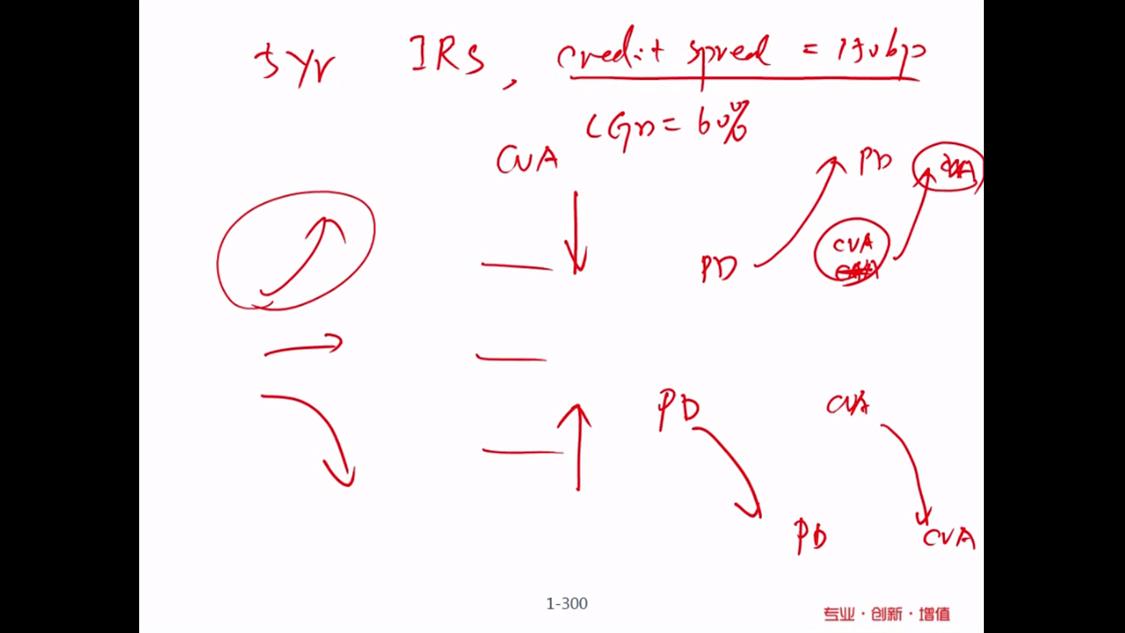 5Yr IRS, credit spred = 150bp
LGD = 60%
CVA
PD
CVA
PD
PD
CVA
PD
CVA
1-300
专业·创新·增值